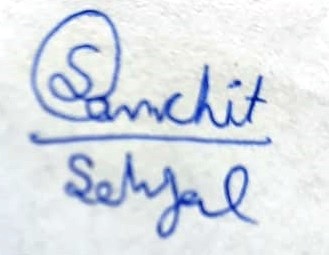 Sanchit
Sehgal